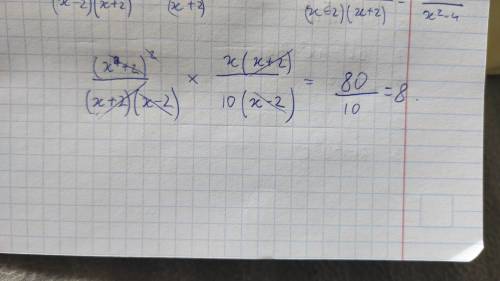 (x-2)(x+2) (x+2) (x-2)(x+2) = x²-4
(x+2)² / (x+2)(x-2) × x(x+2) / 10(x-2) = 80/10 = 8.